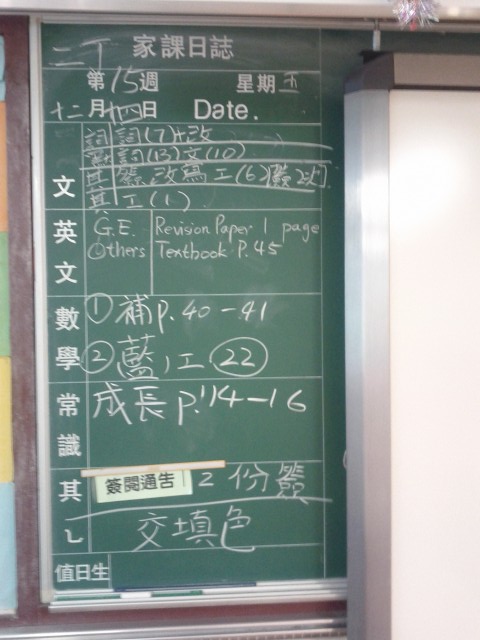 二丁 家課日誌
第15週 星期五
十二月十四日 Date.
文
詞 詞(7)+改
詞(13)文(10)
其 簽.改寫工(6)
其 工(1)
英文
G.E. Revision Paper 1 page
Others Textbook P.45
數學
①補p.40-41
②藍工㉒
常識
成長p.14-16
其
簽閱通告 2份簽
交填色
值日生